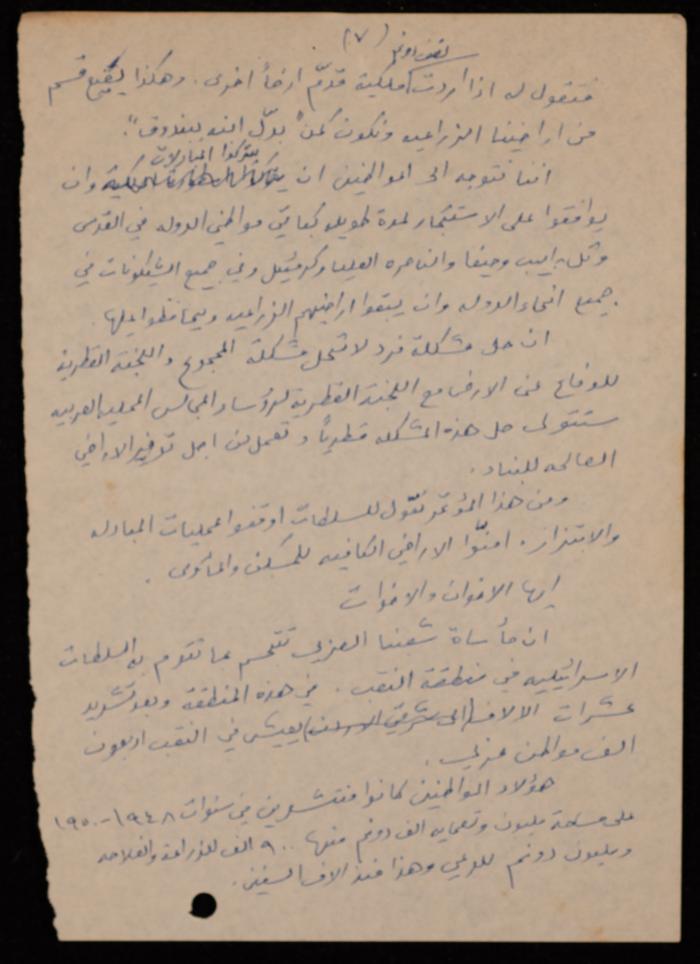 (٧)
نصف دونم
فتقول له اذا اردت ملكية قدّم ارضاً اخرى. وهكذا يضيع قسم
من اراضينا الزراعيه ونكون كمن "بدّل
اننا نتوجه الى المواطنين ان يتركوا المبادلات وان
يوافقوا على الاستئجار لمدة طويله كباقي مواطني الدوله في القدس
وتل ابيب وحيفا والناصره العليا وكرمئيل وفي جميع الشيكونات في
جميع انحاء الدوله وان يبقوا اراضيهم الزراعيه ويحافظوا عليها.
ان حل مشكلة فرد لا تحل مشكلة المجموع واللجنة القطرية
للدفاع عن الارض مع اللجنة القطرية لرؤساء المجالس المحليه العربيه
ستتولى حل هذه المشكله قطرياً وتعمل من اجل توفير الاراضي
الصالحه للبناء.
ومن هذا المؤتمر نقول للسلطات اوقفوا عمليات المبادله
والابتزاز. امنّوا الاراضي الكافيه للمسكن والمأوى.
ايها الاخوان والاخوات
ان مأساة شعبنا العربي تتجسم بما تقوم به السلطات
الاسرائيليه في منطقة النقب. في هذه المنطقة وبعد تشريد
عشرات الالاف (الى شرقي الاردن) يعيش في النقب اربعون
الف مواطن عربي.
هؤلاء المواطنين كانوا منتشرين في سنوات ١٩٤٨-١٩٥٠
على مساحة مليون وتسعمايه الف دونم منها ٩٠٠ الف للزراعة والفلاحه
ومليون دونم للرعي وهذا منذ الاف السنين.